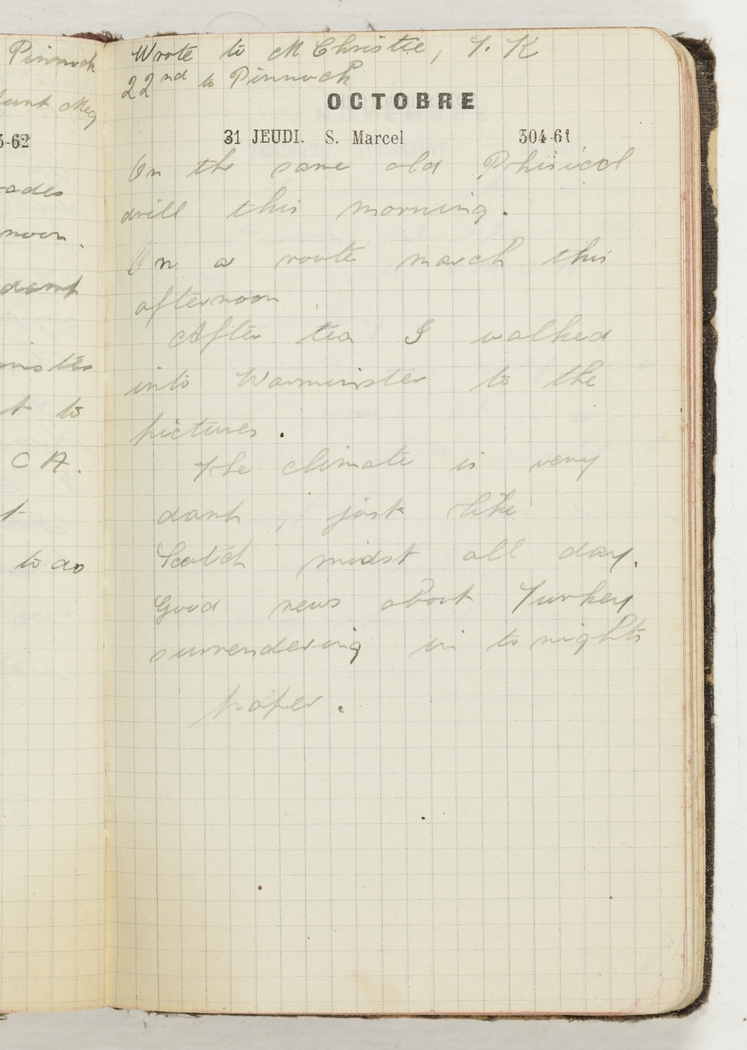 Pinnock
Aunt Meg
3-62
rades
noon.
damp
minster
t to
C A.
t
to do
Wrote to M Christie, Y. K
22nd to Pinnock
OCTOBRE
31 JEUDI. S. Marcel 304-61
On the same old Phisical
drill this morning.
On a route march this
afternoon.
After tea I walked
into Warminster to the
pictures.
The climate is very
damp, just like
Scotch midst all day.
Good news about Turkey
surrendering in to nights
paper.